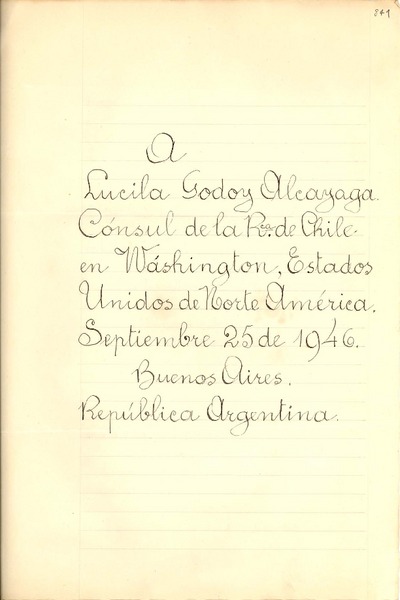 841
A
Lucila Godoy Alcayaga.
Cónsul de la Rca. de Chile
en Wáshington, Estados
Unidos de Norte América.
Septiembre 25 de 1946.
Buenos Aires.
República Argentina.